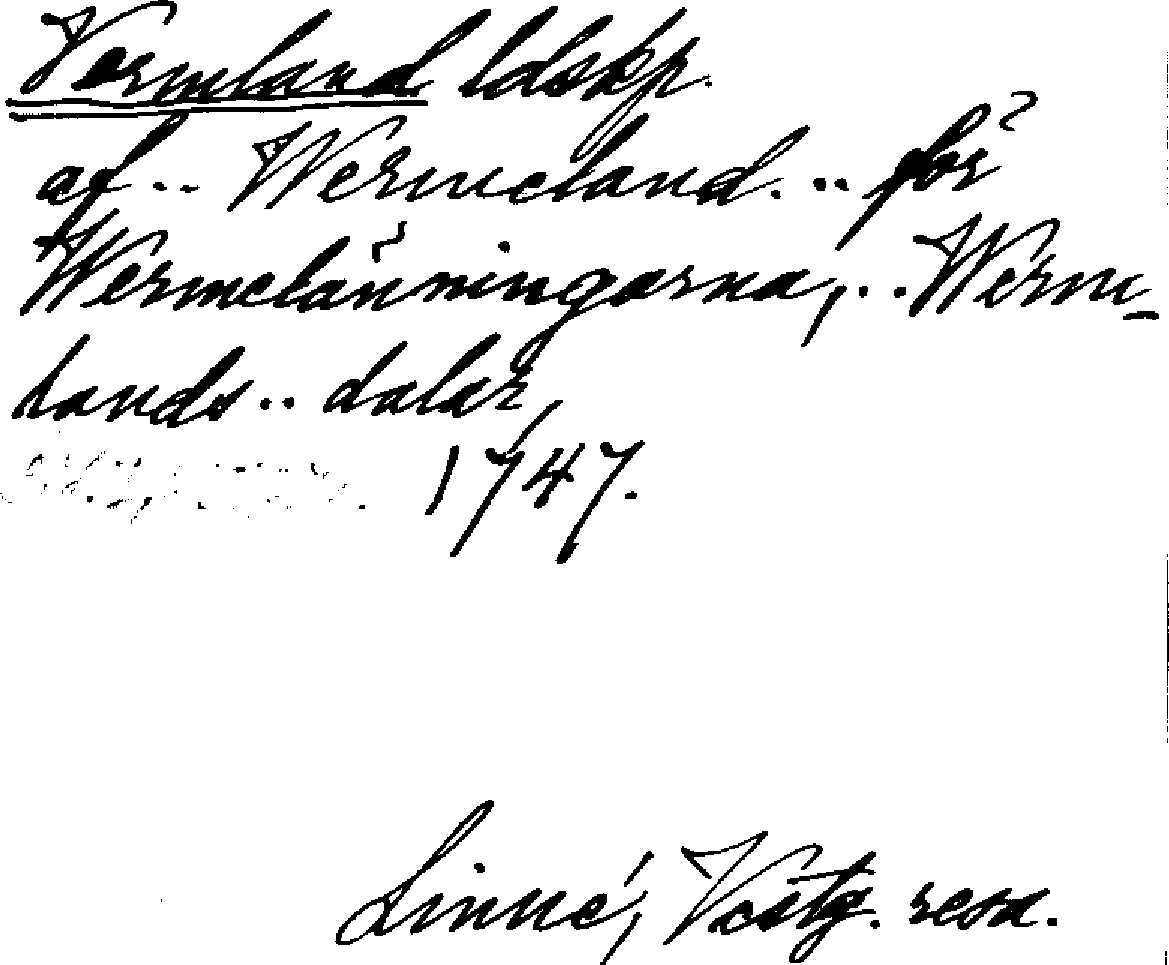 Vermland ldskp.
af .. Wermeland. .. för
Wermelänningarna, .. Werm-
lands .. dalar,
1747.
Linné, Västg. resa.